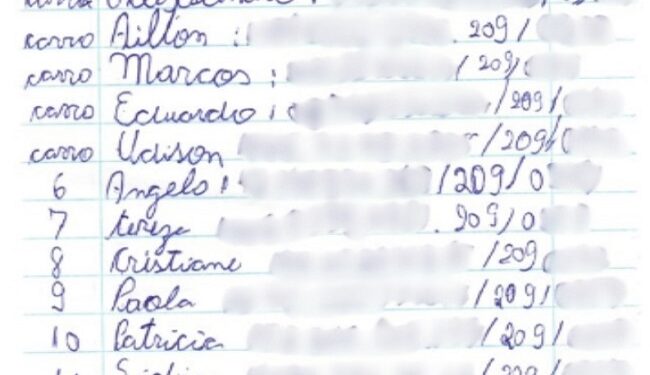 carro Ailton : 209/
carro Marcos : /209/
carro Eduardo : /209/
carro Udison /209/
6 Angelo : /209/0
7 tereza 209/0
8 Cristiane /209
9 Paola /209/
10 Patricia /209/